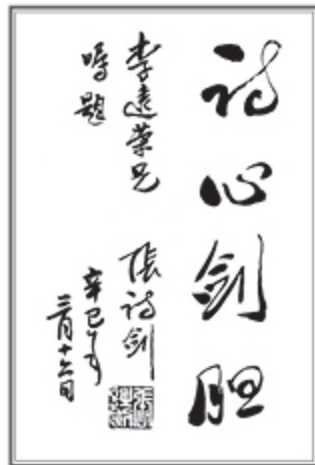 诗心剑胆
李远荣兄
嘱题
張诗剑
辛巳年
三月十六日